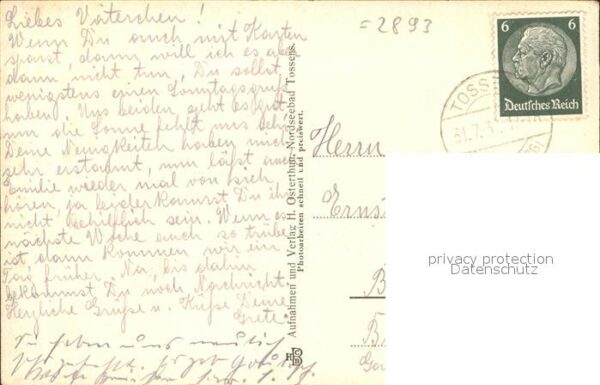 Liebes Väterchen!
Wenn Du auch mit Karten
sparst, dann will ich es aber
dann nicht tun, Du sollst
wenigstens einen Sonntagsgruß
haben. Uns beiden geht es gut
nur die Sonne fehlt uns sehr.
Deine Neuigkeiten haben mich
sehr erstaunt, nun läßt auch
Familie wieder mal von sich
hören, ja leider kannst Du ihr
nicht behilflich sein. Wenn es
nächste Woche auch so trübe
ist dann kommen wir ein
Tag früher. Na, bis dahin
bekommst Du noch Nachricht
Herzliche Grüße u. Küsse Deine
Grete.
=2893
Aufnahmen und Verlag H. Osterthun, Nordseebad Tossens.
Photoarbeiten schnell und preiswert.
6 6
Deutsches Reich
TOSS
31.7.3
Herrn
Ernst
B
B
privacy protection
Datenschutz